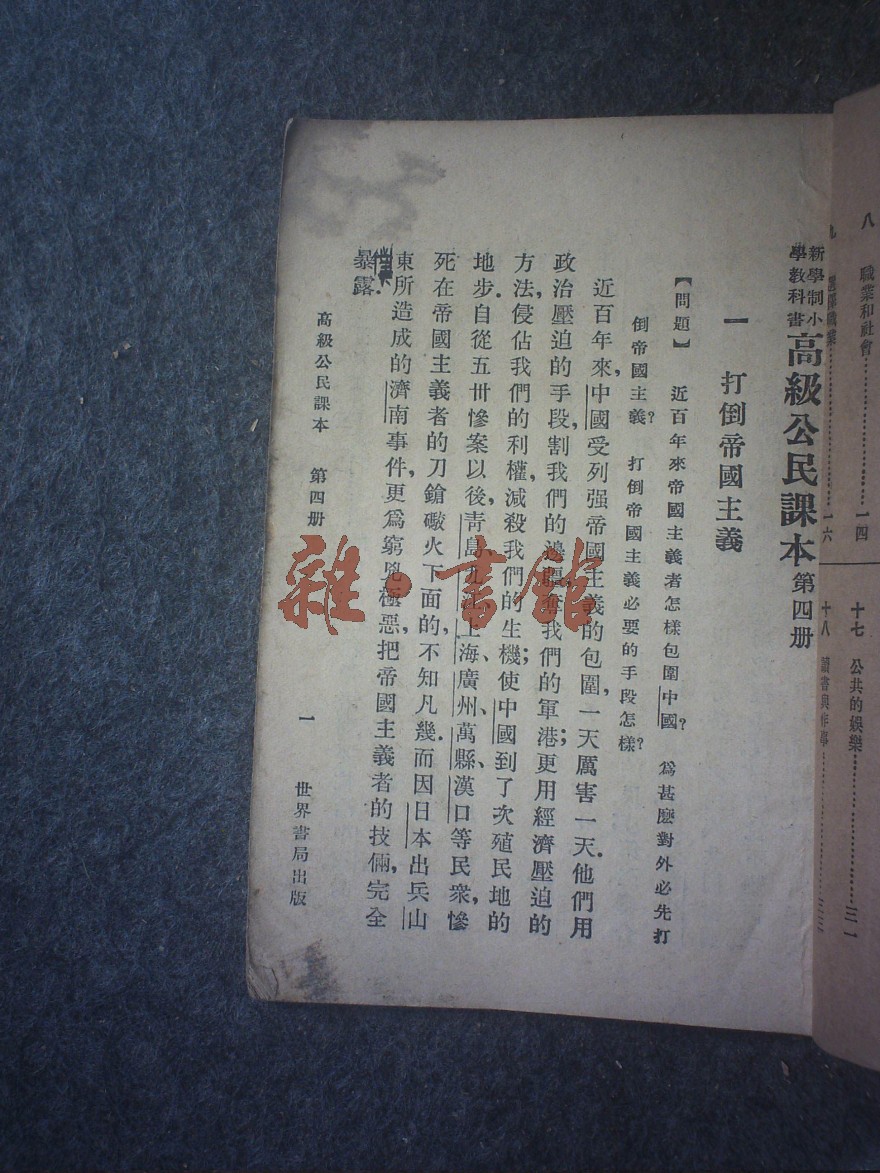 八 職業和社會 一四
十七 公共的娛樂 三一
九 選擇職業 一六
十八 讀書與作事
新學制小學教科書 高級公民課本 第四册
一 打倒帝國主義
【問題】 近百年來帝國主義者怎樣包圍中國？ 爲甚麼對外必先打
倒帝國主義？ 打倒帝國主義必要的手段怎樣？
近百年來，中國受列强帝國主義的包圍，一天厲害一天．他們用
政治壓迫的手段，割我們的邊疆，奪我們的軍港；更用經濟壓迫的
方法，侵佔我們的利權，減殺我們的生機；使中國到了次殖民地的
地步．自從五卅慘案以後，青島、九江、上海、廣州、萬縣、漢口等民衆，慘
死在帝國主義者的刀鎗礮火下面的，不知凡幾．而因日本出兵山
東所造成的濟南事件，更爲窮兇極惡，把帝國主義者的技倆，完全
暴露．
高級公民課本 第四册 一 世界書局出版
雜·書館